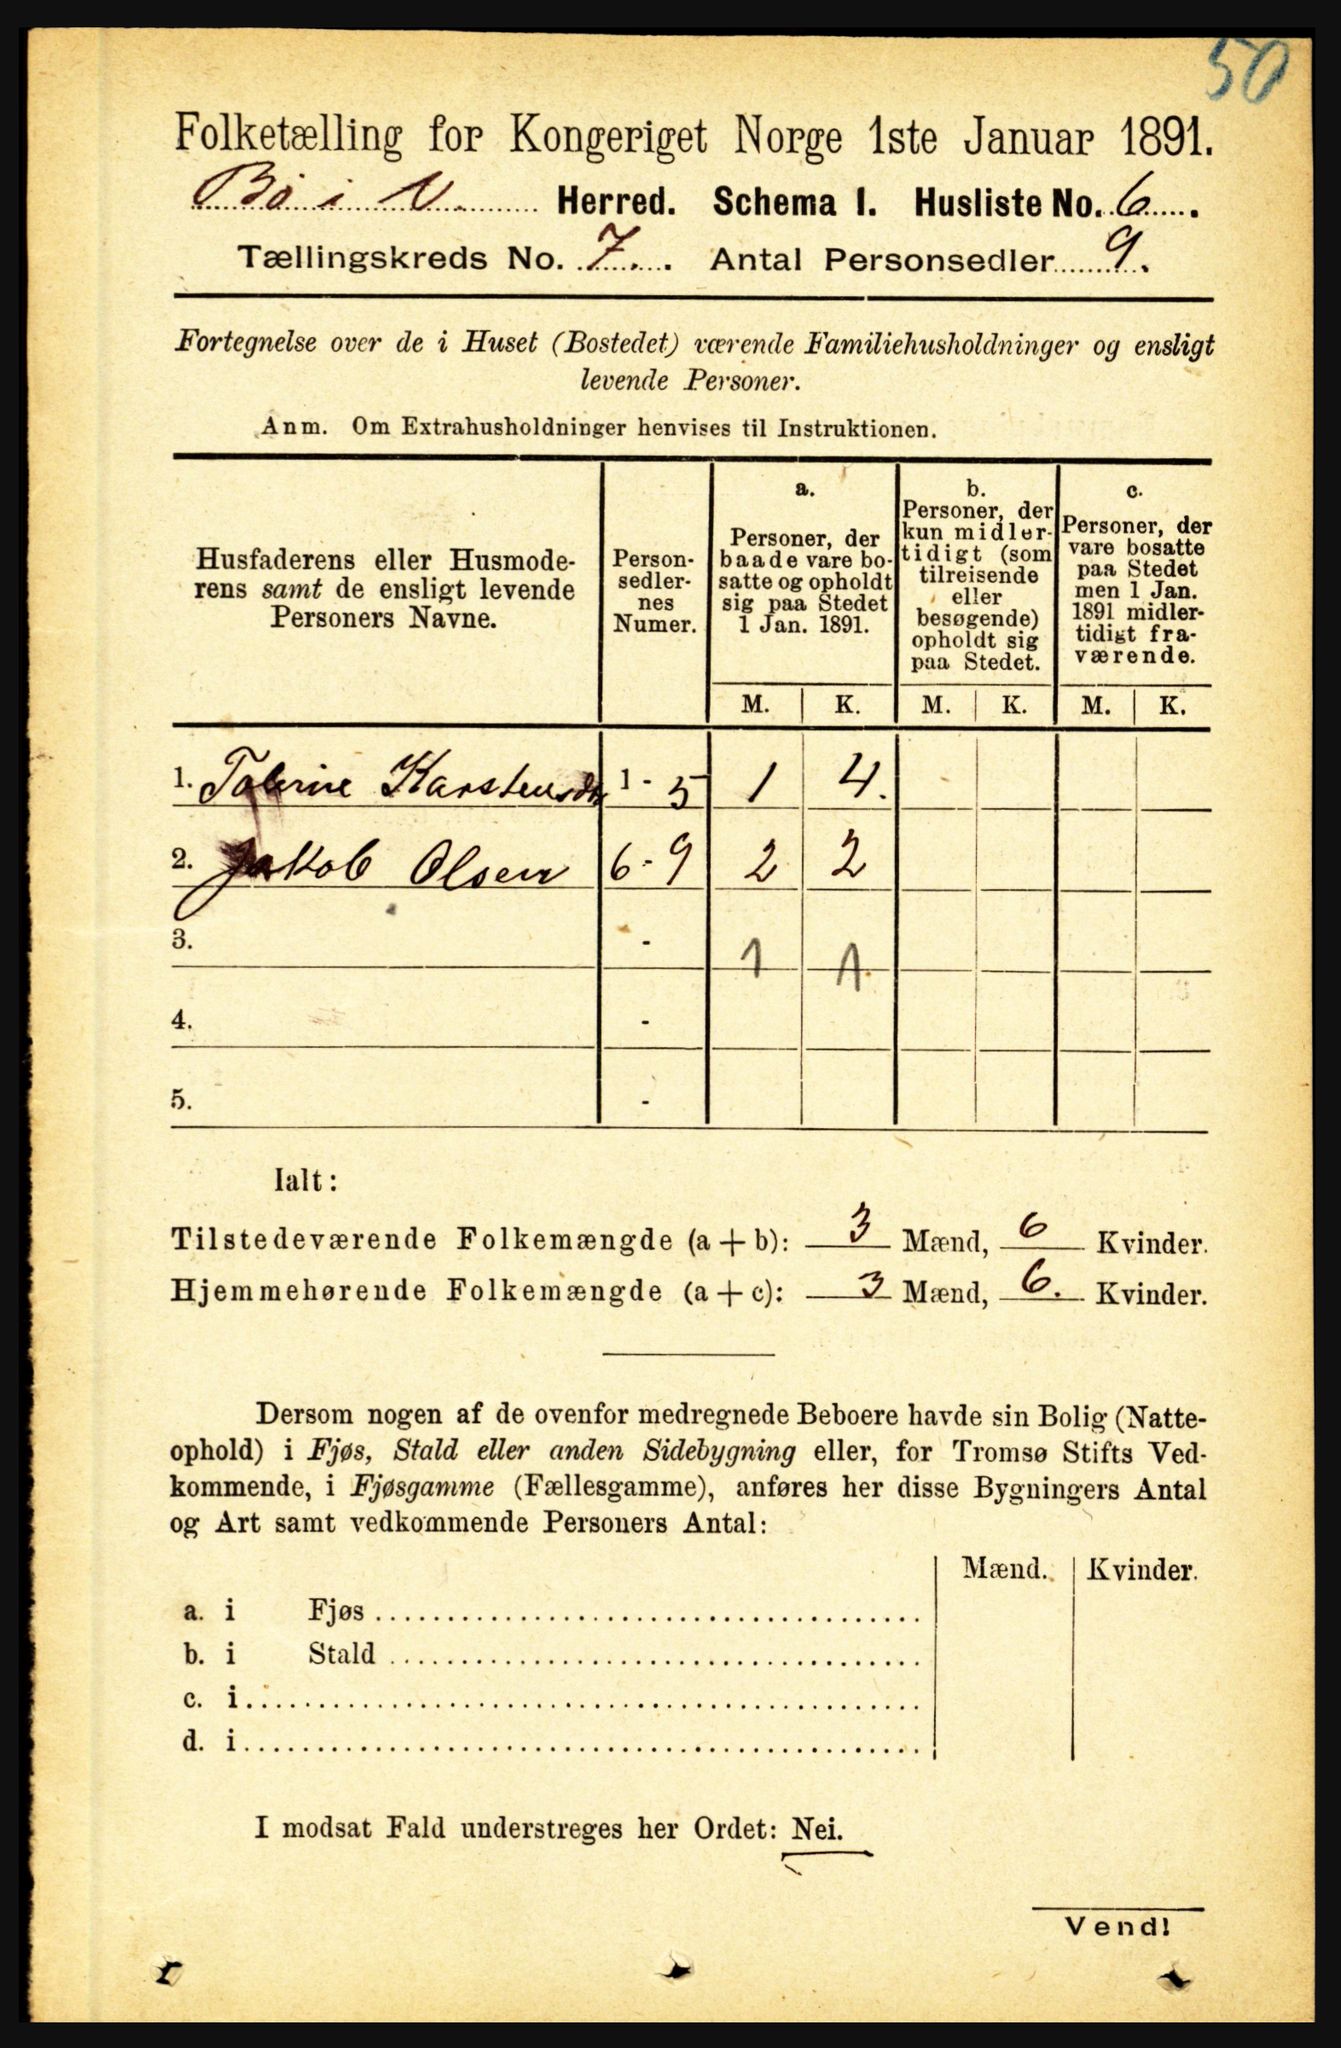 50
Folketælling for Kongeriget Norge 1ste Januar 1891.
Bö i V. Herred. Schema I. Husliste No. 6.
Tællingskreds No. 7. Antal Personsedler 9.
Fortegnelse over de i Huset (Bostedet) værende Familiehusholdninger og ensligt
levende Personer.
Anm. Om Extrahusholdninger henvises til Instruktionen.
Husfaderens eller Husmode-
rens samt de ensligt levende
Personers Navne.
Person-
sedler-
nes
Numer.
a.
Personer, der
baade vare bo-
satte og opholdt
sig paa Stedet
1 Jan. 1891.
b.
Personer, der
kun midler-
tidigt (som
tilreisende
eller
besøgende)
opholdt sig
paa Stedet.
c.
Personer, der
vare bosatte
paa Stedet
men 1 Jan.
1891 midler-
tidigt fra-
værende.
M. K. M. K. M. K.
1. Karstensdtr 1 - 5 1 4.
2. Jakob Olsen 6 - 9 2 2
3. - 1 1
4. -
5. -
Ialt:
Tilstedeværende Folkemængde (a + b): 3 Mænd, 6 Kvinder.
Hjemmehørende Folkemængde (a + c): 3 Mænd, 6. Kvinder.
Dersom nogen af de ovenfor medregnede Beboere havde sin Bolig (Natte-
ophold) i Fjøs, Stald eller anden Sidebygning eller, for Tromsø Stifts Ved-
kommende, i Fjøsgamme (Fællesgamme), anføres her disse Bygningers Antal
og Art samt vedkommende Personers Antal:
Mænd. Kvinder.
a. i Fjøs
b. i Stald
c. i
d. i
I modsat Fald understreges her Ordet: Nei.
Vend!